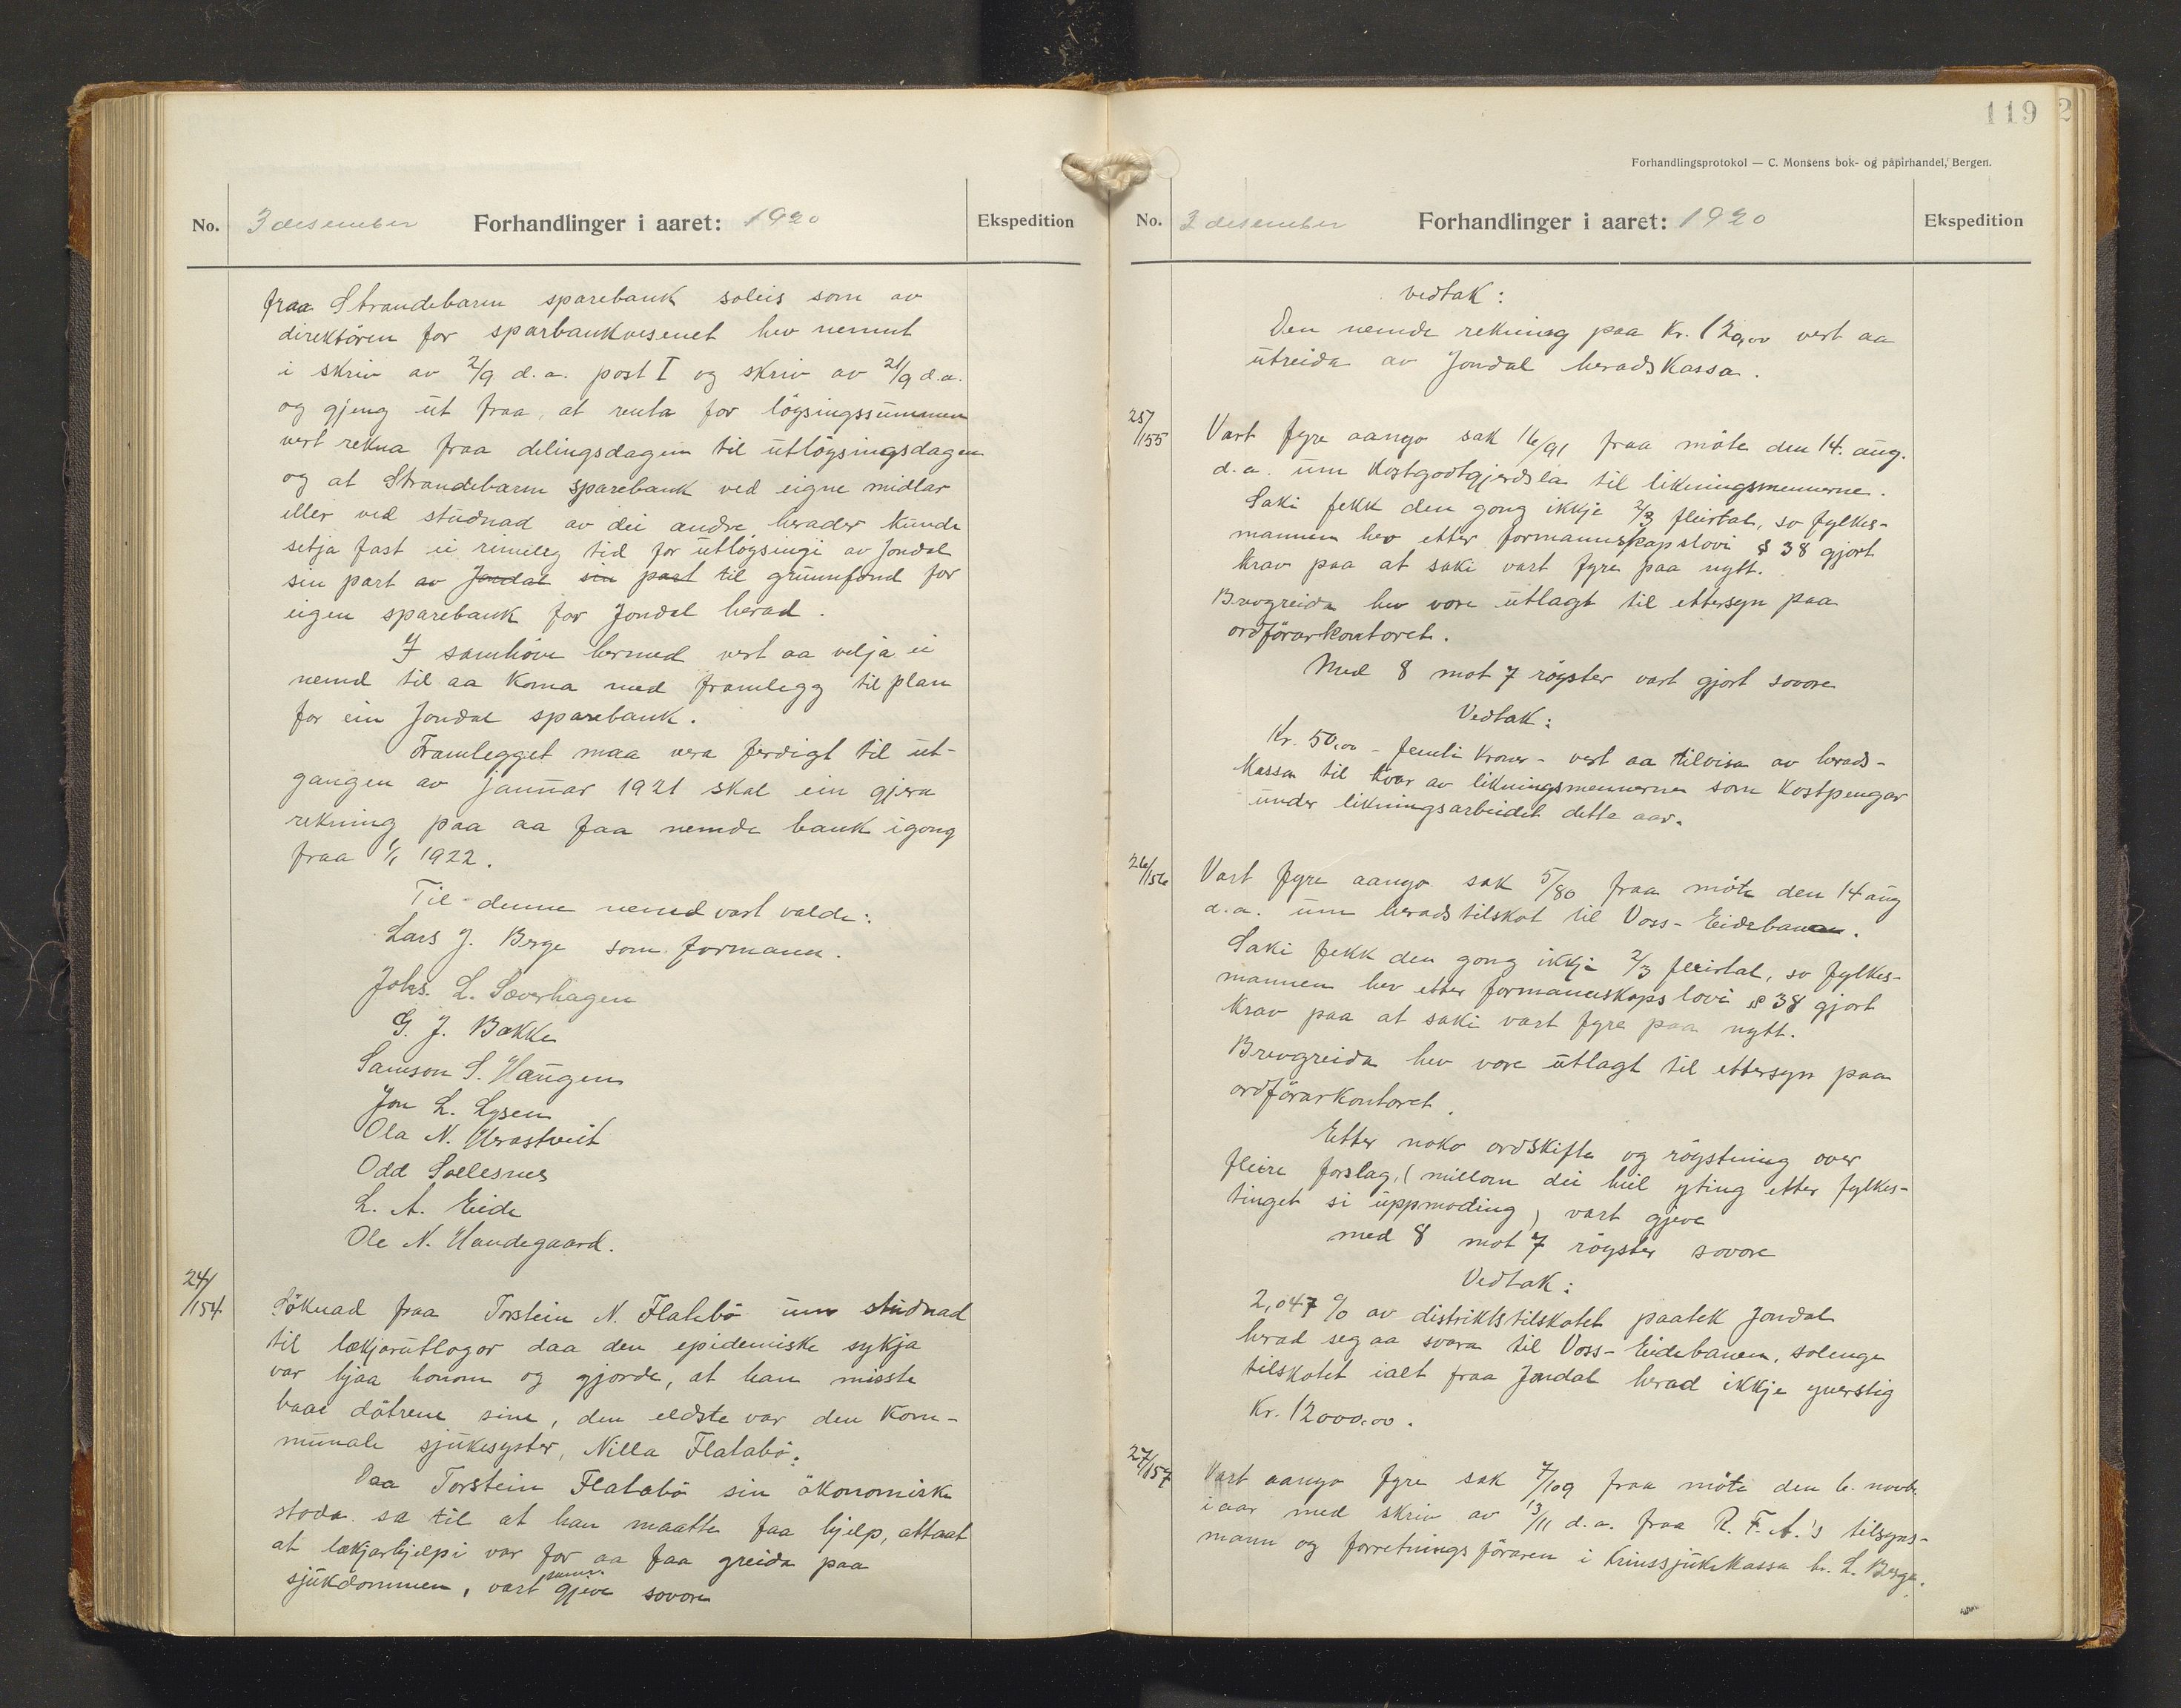 No. 3 desember Forhandlinger i aaret: 1920 Ekspedition
fraa Strandebarm sparebank soleis som av
direktören for sparbankvesenet hev nemnt
i skriv av 2/9 d.a. post I og skriv av 21/9 d.a.
og gjeng ut fraa, at renta for löysingssummen
vert rekna fraa delingsdagen til utlöysingsdagen
og at Strandebarm sparebank ved eigne midlar
eller ved studnad av dei andre herader kunde
setja fast ei rimeleg tid for utlöysingi av Jondal
sin part av Jondal sin part til grunnfond for
eigen sparebank for Jondal herad.
I samhöve hermed vert aa velja ei
nemd til aa koma med framlegg til plan
for ein Jondal sparebank.
Framlegget maa vera ferdigt til ut-
gangen av januar 1921 skal ein gjera
rekning paa aa faa nemde bank igong
fraa 1/1 1922.
Til denne nemd vart valde:
Lars J. Berge som formann.
Johs. L. Sæverhagen
G. J. Bakke
Samson S. Haugen
Jon L. Lysen
Ola N. Herastveit
Odd Solesnes
L. A. Eide
Ole N. Handegaard.
24/154 Söknad fraa Torstein N. Flatebö um studnad
til lækjarutlogor daa den epidemiske sykja
var hjaa honom og gjorde, at han misste
baae döttrene sine, den eldste var den kom-
munale sjukesyster, Nilla Flatabö.
Daa Torstein Flatabö sin ökonomiske
stoda sa til at han maatte faa hjelp, attaat
at lækjarhjelpi var for aa faa greida paa
sjukdommen, vart samr. gjeve sovore
119
Forhandlingsprotokol — C. Monsens bok- og papirhandel, Bergen.
No. 3 desember Forhandlinger i aaret: 1920 Ekspedition
vedtak:
Den nemde rekning paa Kr. 120,00 vert aa
utreida av Jondal heradskassa.
25/155 Vart fyre aango sak 16/91 fraa möte den 14. aug.
d.a. um kostgodtgjerdsla til likningsmennerne.
Saki fekk den gong ikkje 2/3 fleirtal, so fylkes-
mannen hev etter formannskapslovi § 38 gjort
krav paa at saki vart fyre paa nytt.
Brevgreida hev vore utlagt til ettersyn paa
ordförarkontoret.
Med 8 mot 7 röyster vart gjort sovore
Vedtak:
Kr. 50,00 - femti kroner - vert aa tilvisa av herads-
kassa til kvar av likningsmennerne som kostpengar
under likningsarbeidet dette aar.
26/156 Vart fyre aango sak 5/80 fraa möte den 14 aug
d.a. um heradstilskot til Voss-Eidebanen.
Saki fekk den gong ikkje 2/3 fleirtal, so fylkes-
mannen hev etter formannskapslovi § 38 gjort
krav paa at saki vart fyre paa nytt.
Brevgreida hev vore utlagt til ettersyn paa
ordförarkontoret.
Etter noko ordskifte og röystning over
fleire forslag, (millom dei heil yting etter fylkes-
tinget si uppmoding) vart gjeve
med 8 mot 7 röyster sovore
Vedtak:
2,047 % av distriktstilskotet paatek Jondal
herad seg aa svara til Voss-Eidebanen, solenge
tilskotet ialt fraa Jondal herad ikkje yverstig
Kr. 12000,00.
27/157 Vart aango fyre sak 7/109 fraa möte den 6. novb.
iaar med skriv av 13/11 d.a. fraa R. F. A.'s tilsyns-
mann og forretningsföraren i Krinssjukekassa hr. L. Berge.